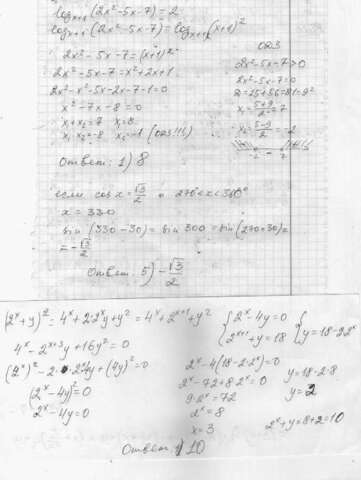 log_{x+1}(2x²-5x-7)=2
log_{x+1}(2x²-5x-7)=log_{x+1}(x+1)²
2x²-5x-7=(x+1)²
2x²-5x-7=x²+2x+1
2x²-x²-5x-2x-7-1=0
x²-7x-8=0
x₁+x₂=7 x₁=8
x₁·x₂=-8 x₂=-1 (ОДЗ!!!)
Ответ: 1) 8
ОДЗ
2x²-5x-7>0
2x²-5x-7=0
D=25+56=81=9²
если cos x=√3/2 и 270°<x<360°
x=330
sin(330-30)=sin 300=sin(270+30)=
=-√3/2
Ответ: 5) -√3/2
(2ˣ+y)²=4ˣ+2·2ˣy+y²=4ˣ+2ˣ⁺¹+y²
4ˣ-2ˣ⁺³y+16y²=0
(2ˣ-4y)²=0
2ˣ-4y=0
{2ˣ-4y=0
2ˣ⁺¹+y=18
{y=18-2·2ˣ
2ˣ-4(18-2·2ˣ)=0
2ˣ-72+8·2ˣ=0
9·2ˣ=72
2ˣ=8
x=3
y=18-2·8
y=2
2ˣ+y=8+2=10
Ответ: 10